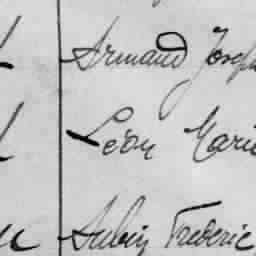 Armand Joseph
Léon Marie
Aubin Frederic